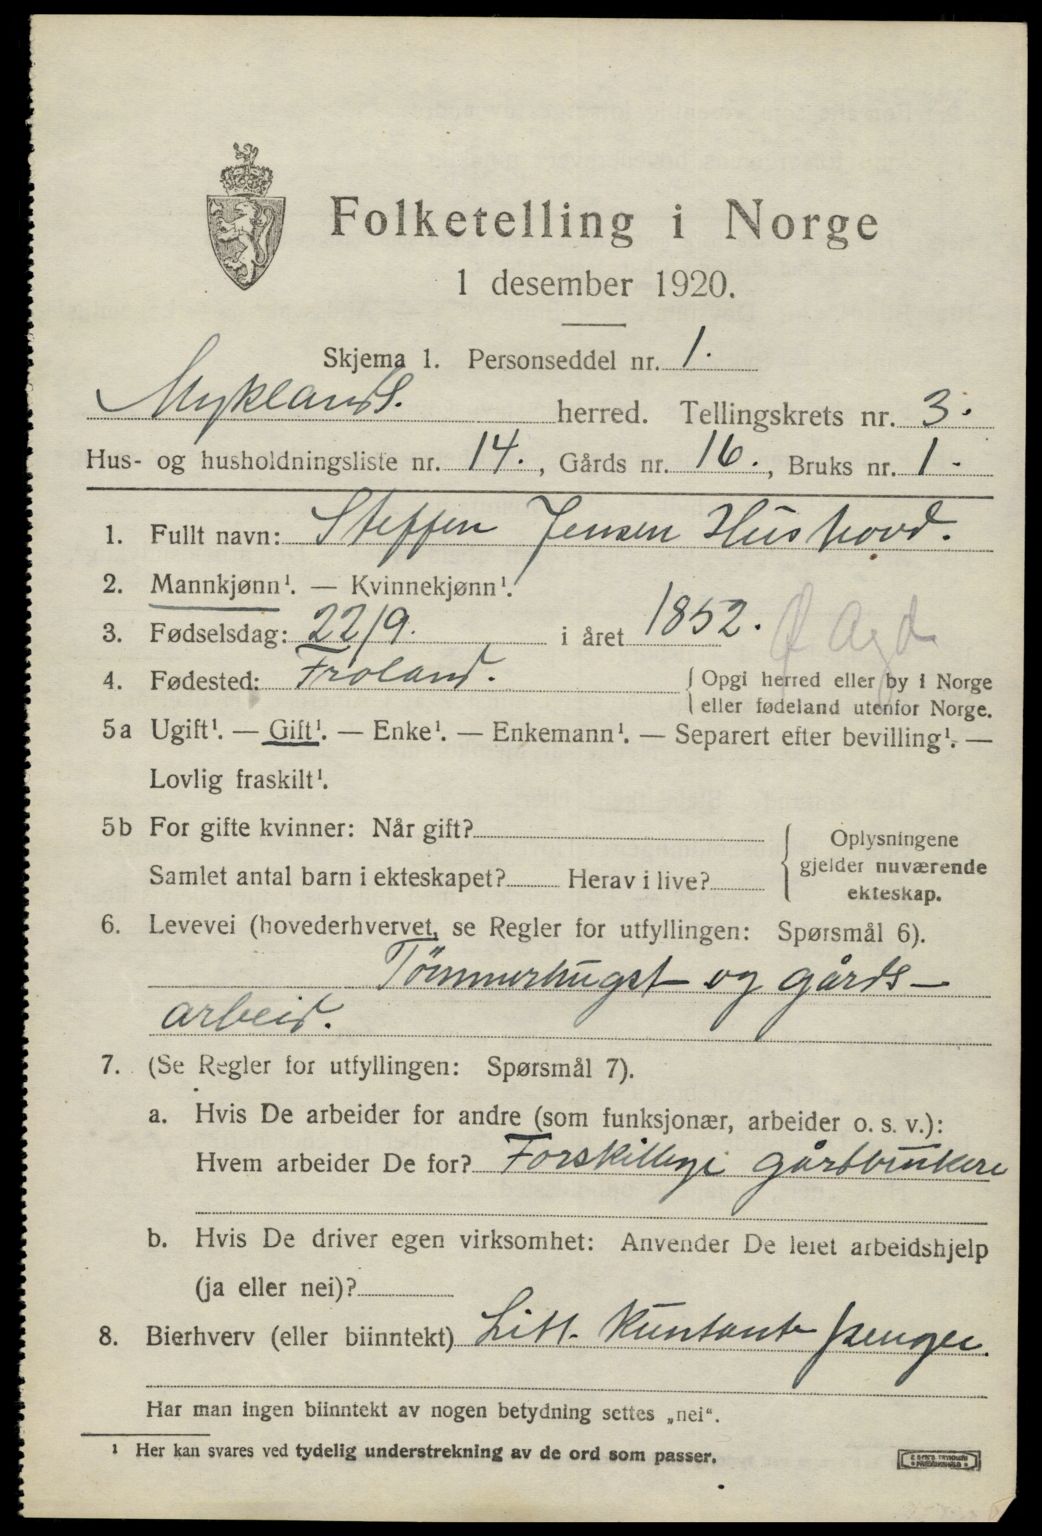 Folketelling i Norge
1 desember 1920.
Skjema 1. Personseddel nr. 1.
Myklands. herred. Tellingskrets nr. 3.
Hus- og husholdningsliste nr. 14., Gårds nr. 16., Bruks nr. 1.
1. Fullt navn: Steffen Jensen Hushovd.
2. Mannkjønn¹. — Kvinnekjønn¹.
3. Fødselsdag: 22/9. i året 1852. Ø Agd
4. Fødested: Froland. { Opgi herred eller by i Norge
eller fødeland utenfor Norge.
5a Ugift¹. — Gift¹. — Enke¹. — Enkemann¹. — Separert efter bevilling¹. —
Lovlig fraskilt¹.
5b For gifte kvinner: Når gift? { Oplysningene
gjelder nuværende
ekteskap.
Samlet antal barn i ekteskapet? Herav i live?
6. Levevei (hovederhvervet, se Regler for utfyllingen: Spørsmål 6).
Tömmerhugst og gårds-
arbeid.
7. (Se Regler for utfyllingen: Spørsmål 7).
a. Hvis De arbeider for andre (som funksjonær, arbeider o. s. v.):
Hvem arbeider De for? Forskillige gårbbrukere
b. Hvis De driver egen virksomhet: Anvender De leiet arbeidshjelp
(ja eller nei)?
8. Bierhverv (eller biinntekt) Litt kuntant penger.
Har man ingen biinntekt av nogen betydning settes „nei“.
¹ Her kan svares ved tydelig understrekning av de ord som passer.